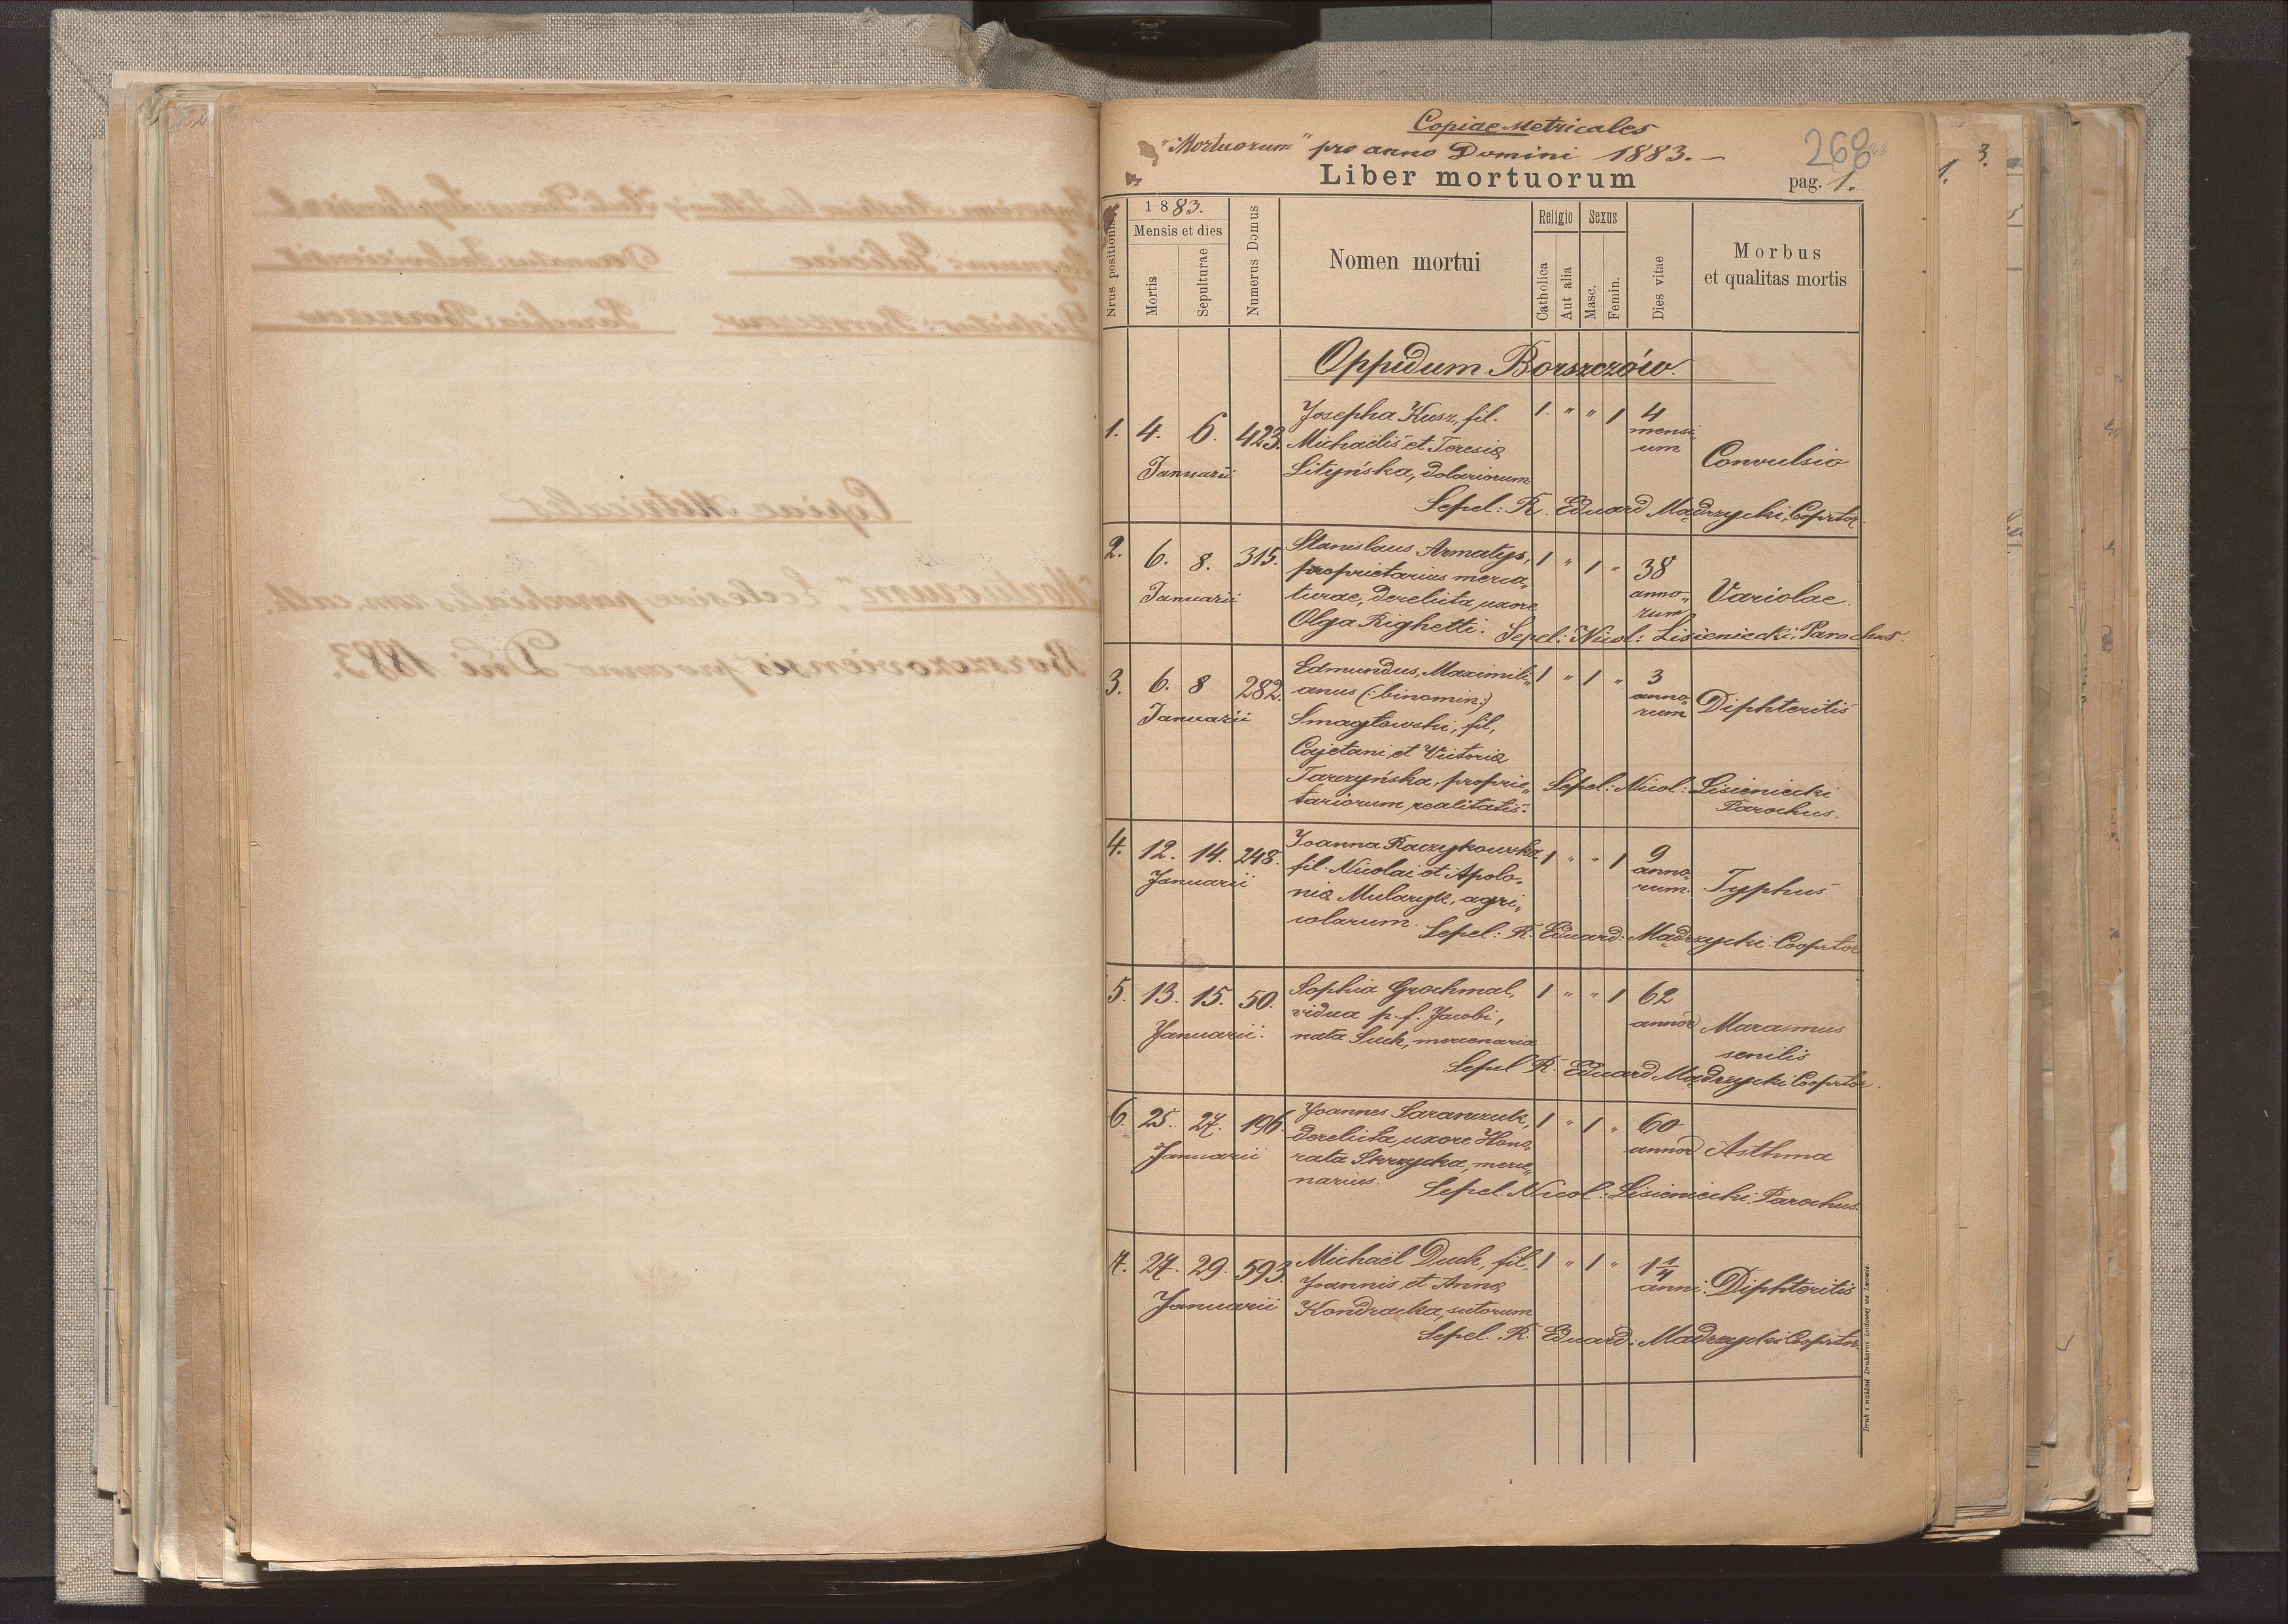 Copiae Metricales
"Mortuorum" pro anno Domini 1883. -
268
Liber mortuorum
pag. 1.
Nrus positionis
1883.
Mensis et dies
Mortis
Sepulturae
Numerus Domus
Nomen mortui
Religio
Catholica
Aut alia
Sexus
Masc.
Femin.
Dies vitae
Morbus
et qualitas mortis
Oppidum Borszczów.
1. 4. 6. 423. Josepha Kusz, fil. 1. " " 1 4
Michaëlis et Teresia mensi,
Januarii Lityńska, dolariorum um Convulsio
Sepel: R. Eduard Mądrzycki, Coprtor.
2. 6. 8. 315. Stanislaus Armatys, 1 " 1 " 38
proprietarius merca,, anno,,
Januarii turae, derelicta uxore rum Variolae.
Olga Righetti. Sepel: Nicol: Lisieniecki, Parochus.
3. 6. 8 282. Edmundus, Maximili,, 1 " 1 " 3
anus (:binomin:) anno,,
Januarii Smagłowski, fil, rum Diphteritis
Cajetani et Victoria
Tarczyńska, proprie,, Sepel: Nicol: Lisieniecki
tariorum realitatis. Parochus.
4. 12. 14. 248. Joanna Raczykowska 1 " " 1 9
Januarii fil. Nicolai et Apolo,, anno,,
nia Mularyk, agri,, rum. Typhus
colarum. Sepel: R. Eduard: Mądrzycki Cooprtor
5. 13. 15. 50. Sophia Grochmal, 1 " " 1 62
vidua p. f. Jacobi, annor Marasmus
Januarii. nata Such, mercenaria senilis
Sepel R. Eduard Mądrzycki Cooprtor.
6. 25. 27. 196. Joannes Saranczuk, 1 " 1 " 60
derelicta uxore Hono,, annor Asthma
Januarii rata Skrzycka, merce,,
narius. Sepel. Nicol: Lisieniecki Parochus.
7. 27. 29. 593. Michaël Duch, fil. 1 " 1 " 1 1/4
Joannis et Anna anni. Diphteritis
Januarii Kondracka, sutorum
Sepel. R. Eduard: Mądrzycki Cooprtor.
Druk i nakład Drukarni Ludowej we Lwowie.